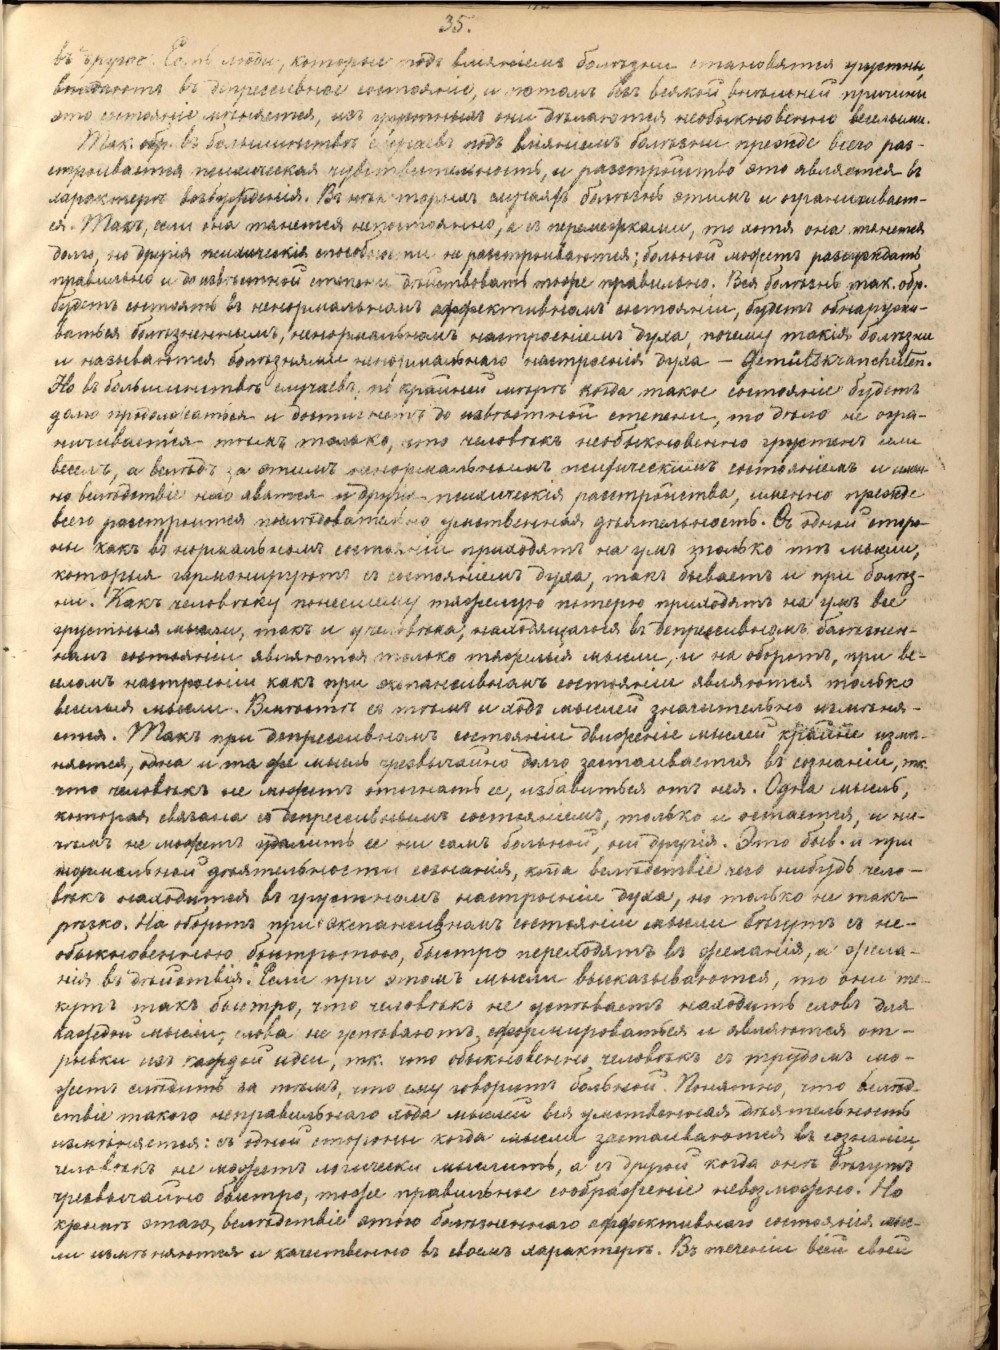 35.
въ другое. Есть люди, которые подъ вліяніемъ болѣзни становятся грустны,
впадаютъ въ депрессивное состояніе, и потомъ безъ всякой внѣшней причины
это состояніе мѣняется, изъ грустныхъ они дѣлаются необыкновенно веселыми.
Так. обр. въ большинствѣ случаевъ подъ вліяніемъ болѣзни прежде всего раз-
страивается психическая чувствительность, и разстройство это является въ
характерѣ возбужденія. Въ нѣкоторыхъ случаяхъ болѣзнь этимъ и ограничивает-
ся. Такъ, если она тянется непостоянно, а съ перемежками, то хотя она тянется
долго, но другія психическія способности не разстраиваются; больной можетъ разсуждать
правильно и до извѣстной степени дѣйствовать тоже правильно. Вся болѣзнь так. обр.
будетъ состоять въ ненормальномъ аффективномъ состояніи, будетъ обнаружи-
ваться болѣзненнымъ, ненормальнымъ настроеніемъ духа, почему такія болѣзни
и называются болѣзнями ненормальнаго настроенія духа — Gemütskrancheiten.
Но въ большинствѣ случаевъ, по крайней мѣрѣ когда такое состояніе будетъ
долго продолжаться и достигнетъ до извѣстной степени, то дѣло не огра-
ничивается тѣмъ только, что человѣкъ необыкновенно грустенъ или
веселъ, а вслѣдъ за этимъ ненормальнымъ психическимъ состояніемъ и имен-
но вслѣдствіе него явятся и другія психическія разстройства, именно прежде
всего разстроится послѣдовательно умственная дѣятельность. Съ одной сторо-
ны какъ въ нормальномъ состояніи приходятъ на умъ только тѣ мысли,
которыя гармонируютъ съ состояніемъ духа, такъ бываетъ и при болѣз-
ни. Какъ человѣку понесшему тяжелую потерю приходятъ на умъ все
грустныя мысли, такъ и у человѣка, находящагося въ депрессивномъ болѣзнен-
номъ состояніи являются только тяжелыя мысли, и на оборотъ, при ве-
селомъ настроеніи какъ при экспансивномъ состояніи являются только
веселыя мысли. Вмѣстѣ съ тѣмъ и ходъ мыслей значительно измѣня-
ется. Такъ при депрессивномъ состояніи движеніе мыслей крайне измѣ-
няется, одна и та же мысль чрезвычайно долго застаивается въ сознаніи, тк.
что человѣкъ не можетъ отогнать ее, избавиться отъ нея. Одна мысль,
которая связана съ депрессивнымъ состояніемъ, только и остается, и ни-
чѣмъ не можетъ удалить ее ни самъ больной, ни другія. Это быв. и при
нормальной дѣятельности сознанія, когда вслѣдствіе чего нибудь чело-
вѣкъ находится въ грустномъ настроеніи духа, но только не такъ
рѣзко. На оборотъ при экспансивномъ состояніи мысли бѣгутъ съ не-
обыкновенною быстротою, быстро переходятъ въ желанія, а жела-
нія въ дѣйствія. Если при этомъ мысли высказываются, то они те-
кутъ такъ быстро, что человѣкъ не успѣваетъ находить словъ для
каждой мысли, слова не успѣваютъ сформироваться и являются от-
рывки изъ каждой идеи, тк. что обыкновенно человѣкъ съ трудомъ мо-
жетъ слѣдить за тѣмъ, что ему говоритъ больной. Понятно, что вслѣд-
ствіе такого неправильнаго хода мыслей вся умственная дѣятельность
измѣняется: съ одной стороны когда мысли застаиваются въ сознаніи
человѣкъ не можетъ логически мыслить, а съ другой когда онѣ бѣгутъ
чрезвычайно быстро, тоже правильное соображеніе невозможно. Но
кромѣ этаго, вслѣдствіе этого болѣзненнаго аффективнаго состоянія мыс-
ли измѣняются и качественно въ своемъ характерѣ. Въ теченіи всей своей